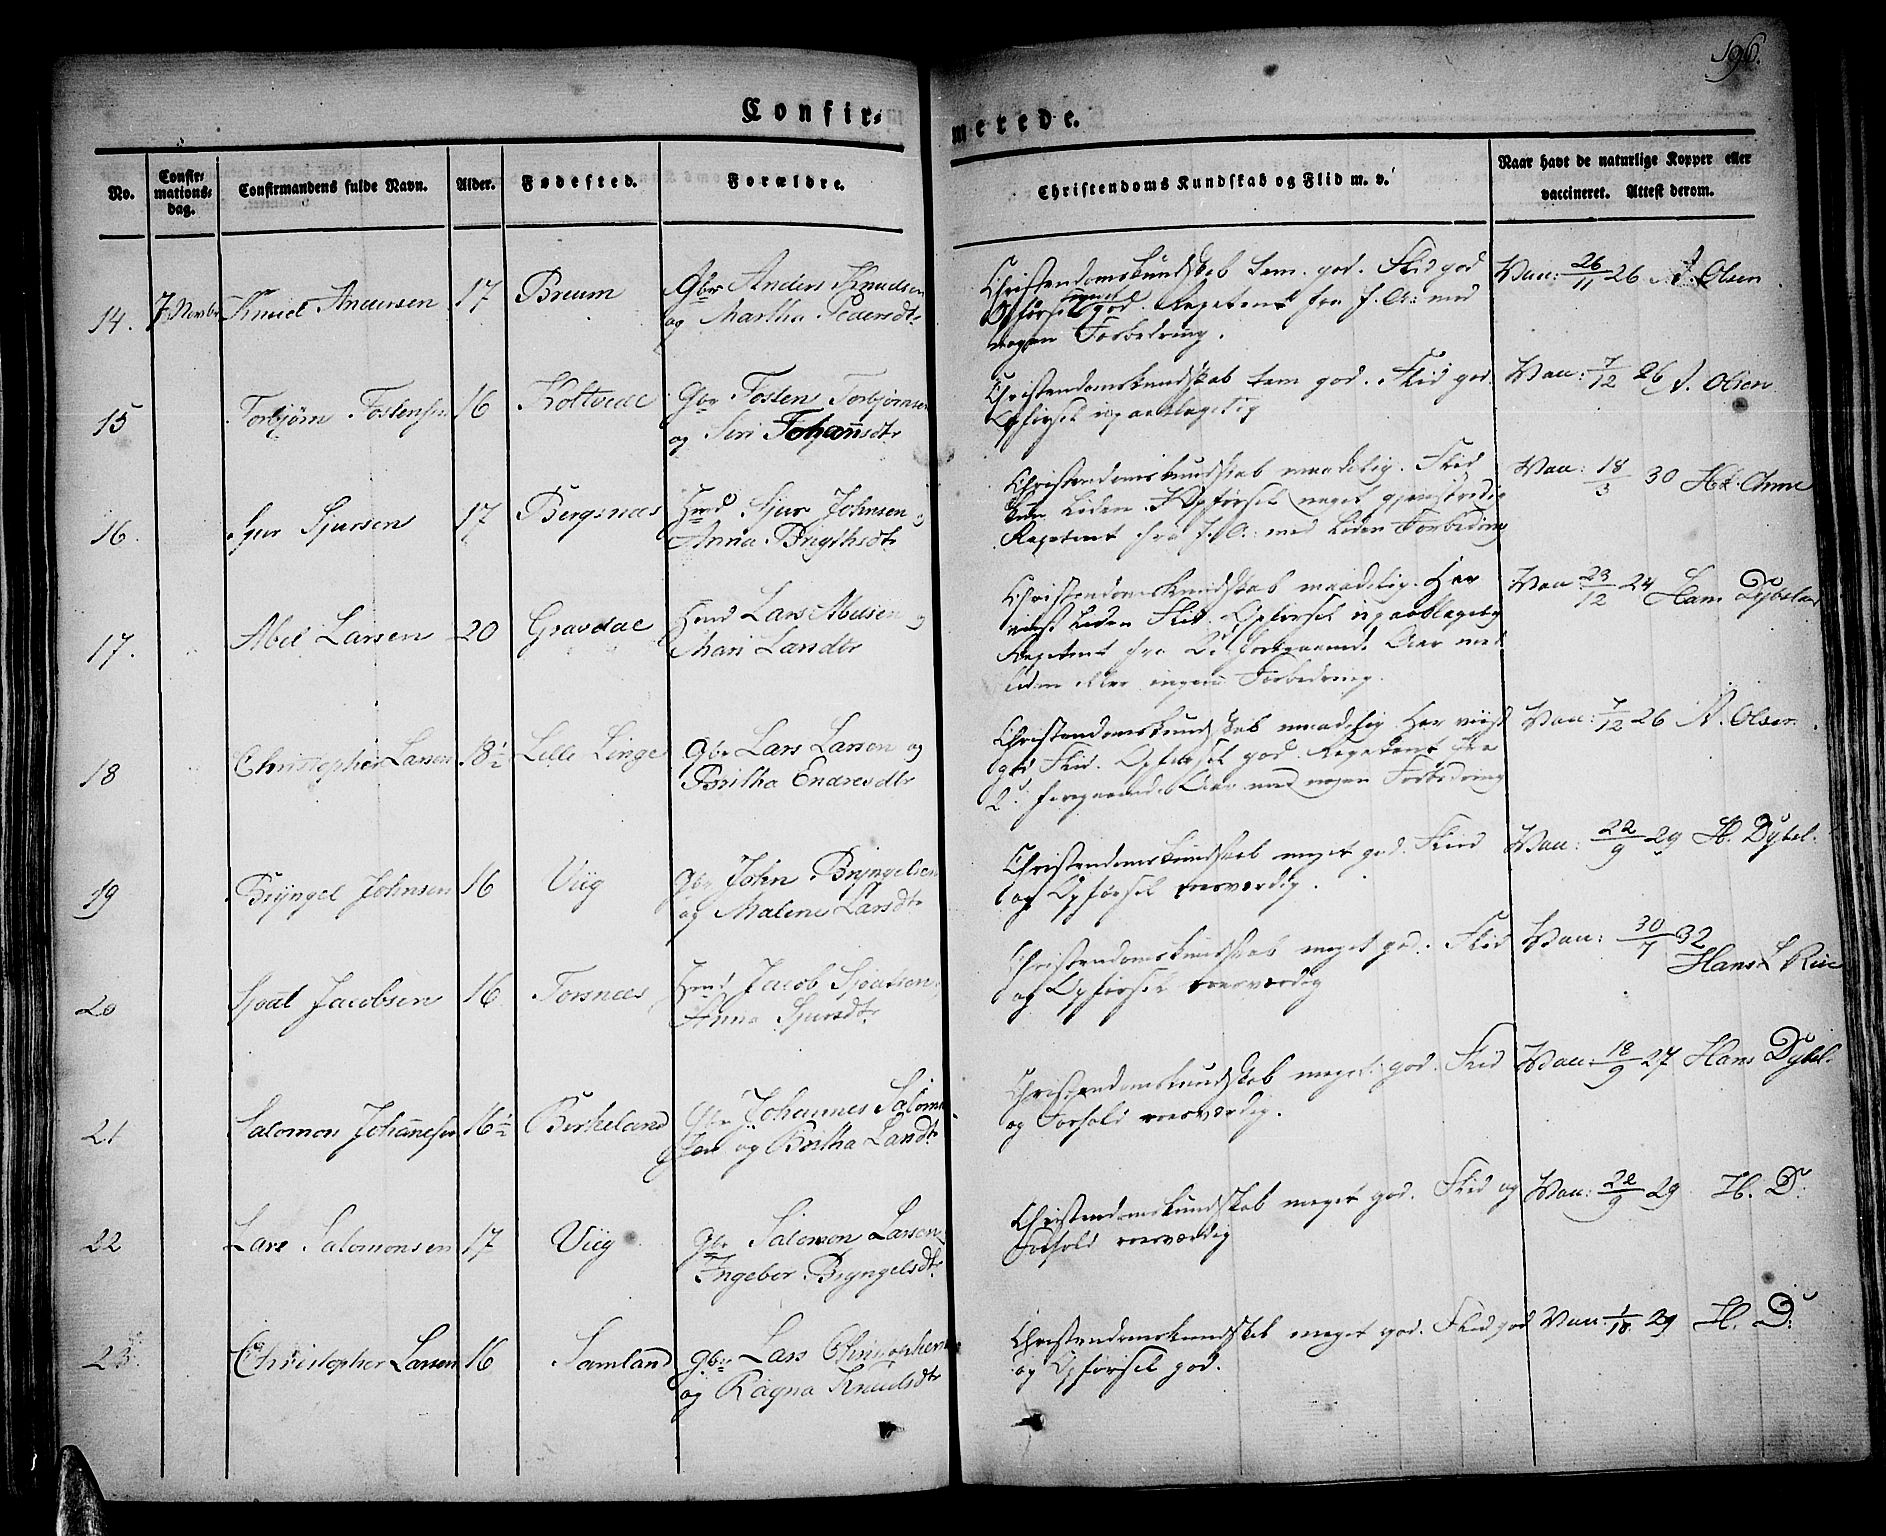 196.
Confir-
merede.
No.
Confir-
mations-
dag.
Confirmandens fulde Navn.
Alder.
Fødested.
Forældre.
Christendoms Kundskab og Flid m. v.
Naar havt de naturlige Kopper eller
vaccineret. Attest derom.
14. 7 Novbr Knud Andersen 17 Breum Gbr Anders Knudsen
og Martha Pedersdtr
Christendomskundskab tem. god. Flid god
Opførsel god. Repetent fra f. A: med
nogen Forbedring.
Vac: 26/11 26 J. Olsen
15 Torbjørn Tostensen 16 Koltveit Gbr Tosten Torbjørnsen
og Siri Johannsdtr
Christendomskundskab tem god. Flid god
Opførsel upaaklagelig
Vac: 7/12 26 J. Olsen
16. Sjur Sjursen 17 Bergsnæs Hmd Sjur Johnsen
Anna Brythsdtr
Christendomskundskab maadelig. Flid
kun Liden. Opførsel noget gjenstridig
Repetent fra f. A: med Liden Forbedring
Vac: 18/3 30
17. Abel Larsen 20 Gravdal Hmd Lars Abelsen
Mari Larsdtr
Christendomskundskab maadelig. Har
viist Liden Flid. Opførsel upaaklagelig
Repetent fra 2de foregaaende Aar med
liden eller ingen Forbedring.
Vac 23/12 24
18 Christopher Larsen 18½ Lille Linge Gbr Lars Larsen og
Britha Endresdtr
Christendomskundskab maadelig Har viist
god Flid. Opførsel god. Repetent fra
2de foregaaende Aar med nogen Forbedring
Vac: 7/12 26 J. Olsen
19 Bryngel Johnsen 16 Viig Gbr John Bryngelsen
og Malene Larsdtr
Christendomskundskab meget god. Flid
og Opførsel roesværdig.
Vac: 22/9 29 H. Dybsl.
20 Sjoat Jacobsen 16 Torsnæs Hmd Jacob Sjoatsen
Anna Sjursdtr
Christendomskundskab meget god. Flid
og Opførsel roesværdig
Vac: 30/7 32
Hans L
21 Salomon Johannesen 16½ Birkeland Gbr Johannes Salomon
sen og Britha Larsdtr
Christendomskundskab meget god. Flid
og Forhold roesværdig.
Vac: 18/9 27 Hans Dybsl:
22 Lars Salomonsen 17 Viig Gbr Salomon Larsen
Ingebor Bryngelsdtr
Christendomskundskab meget god. Flid og
Forhold roesværdig
Vac: 22/9 29 H. D:
23. Christopher Larsen 16 Samland Gbr Lars Christophersen
og Ragna Knudsdtr
Christendomskundskab meget god. Flid god
og Opførsel god.
Vac: 1/10 29 H. D: